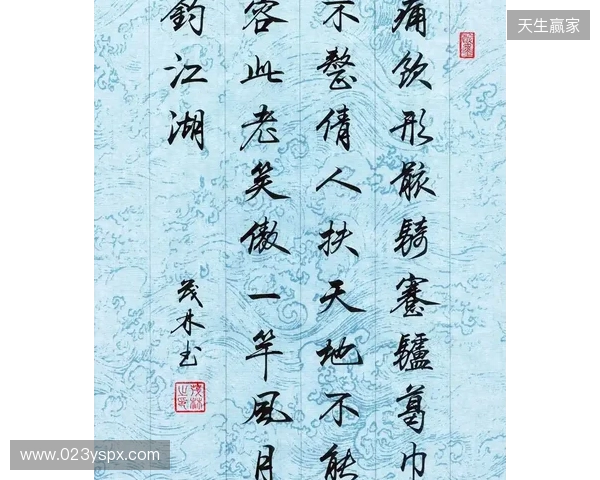 天生赢家
痛饮形骸騎蹇驢葛巾
不整倩人扶天地不能
容此老笑傲一竿風月
釣江湖
茂林书
www.023yspx.com